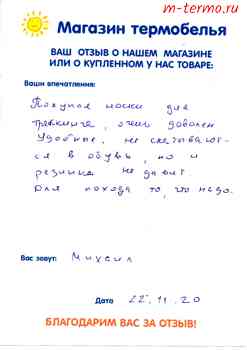 m-termo.ru
Магазин термобелья
ВАШ ОТЗЫВ О НАШЕМ МАГАЗИНЕ
ИЛИ О КУПЛЕННОМ У НАС ТОВАРЕ:
Ваши впечатления:
Покупал носки для
треккинга, очень доволен
Удобные, не скатывают-
ся в обувь, но и
резинка не давит.
Для похода то, что надо.
Вас зовут: Михаил
Дата 22.11.20
БЛАГОДАРИМ ВАС ЗА ОТЗЫВ!